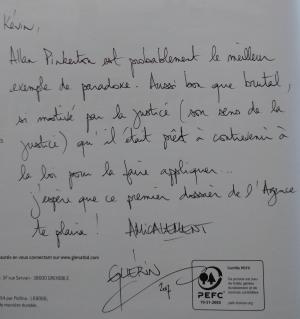 Kévin,
Allan Pinkerton est probablement le meilleur
exemple de paradoxe. Aussi bon que brutal,
si motivé par la justice (son sens de la
justice) qu'il était prêt à contrevenir à
la loi pour la faire appliquer...
j'espère que ce premier dossier de l'Agence
te plaira ! AMICALEMENT
en vous connectant sur www.glenatbd.com
37 rue Servan - 38000 GRENOBLE
GUÉRIN
Certifié PEFC
PEFC
10-31-2053
pefc-france.org